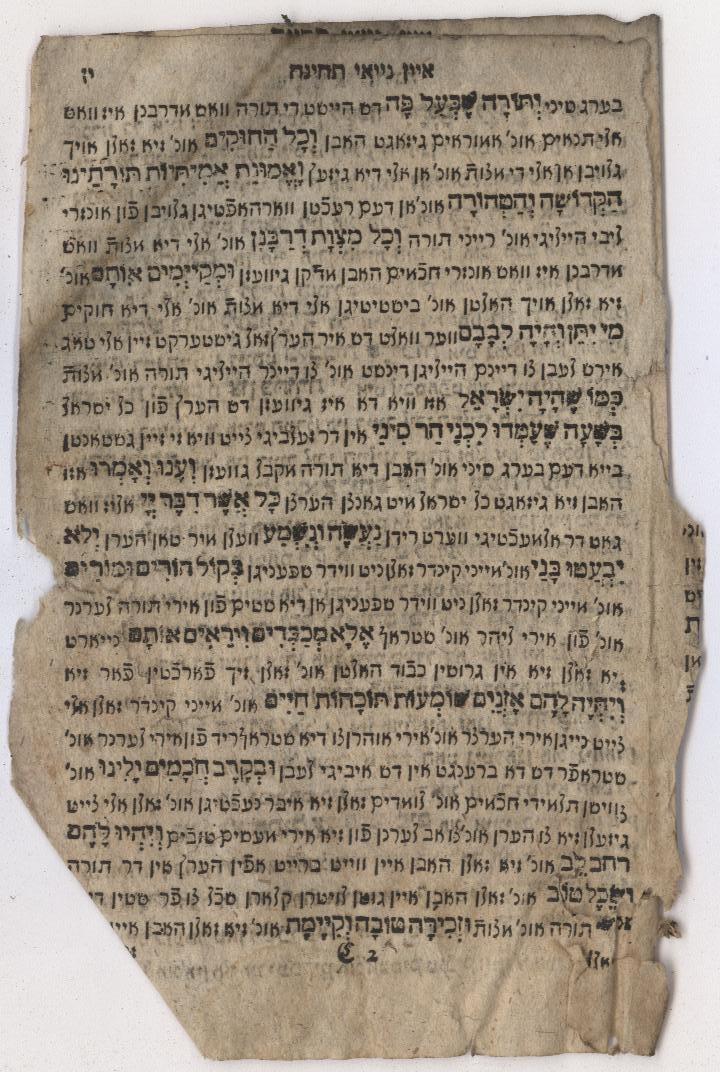 איין נייאי תחינה
יז
בערג סיני וְתוֹרָה שֶׁבְּעַל פֶּה דש הייסט די תורה וואש מדרבנן איז וואש
אלי תנאים אונ' אמוראים גיזאגט האבן וְכָל הַחוּקִים אונ' זיא זאלן אויך
גלויבן אן אלי די מצות אונ' אן אלי דיא גיזעץ וֶאֱמוּנַת אֲמִיתִּיוֹת תּוֹרָתֵינוּ
הַקְּדוֹשָׁה וְהַטְּהוֹרָה אונ' אן דעם רעכטן ווארהאפטיגן גלויבן פון אונזרי
ליבי הייליגי אונ' רייני תורה וְכָל מִצְוֹת דְרַבָּנָן אונ' אלי דיא מצות וואש
מדרבנן איז וואש אונזרי חכמים האבן מתקן גיוועזן וּמְקַיְימִים אוֹתָם אונ'
זיא זאלן אויך האלטן אונ' ביסטיטיגן אלי דיא מצות אונ' אלי דיא חוקים
מִי יִתֵּן וְהָיָה לְבָבָם ווער וואלט דש איר הערץ זאל גישטערקט זיין אלי טאג
אירש לעבן צו דיינם הייליגן דינסט אונ' צו דיינר הייליגי תורה אונ' מצות
כְּמוֹ שֶׁהָיָה יִשְׂרָאֵל אזו וויא דא איז גיוועזן דש הערץ פון כל ישראל
בְּשָׁעָה שֶׁעָמְדוּ לִפְנֵי הַר סִינַי אין דר זעלביגי צייט וויא זי זיין גשטאנטן
בייא דעם בערג סיני אונ' האבן דיא תורה מקבל גוועזן וְעָנוּ וְאָמְרוּ אזו
האבן זיא גיזאגט כל ישראל מיט גאנצן הערצן כֹּל אֲשֶׁר דִבֶּר יְיָ אלז וואש
גאט דר אלמעכטיגי ווערט רידן נַעֲשֶׂה וְנִשְׁמָע וועלן מיר טאן הערן וְלֹא
יִבְעֲטוּ בָּנַי אונ' מייני קינדר זאלן ניט ווידר שפעניגן בְּקוֹל הוֹרִים וּמוֹרִים
אונ' מייני קינדר זאלן ניט ווידר שפעניגן אן דיא שטים פון אירי תורה לערנר
אונ' פון אירי ליהר אונ' שטראף אֶלָּא מְכַבְּדִים וִירֵאִים אוֹתָם נייארט
זיא זאלן זיא אין גרושין כבוד האלטן אונ' זאלן זיך פארכטין פאר זיא
וְיִהְיֶה לָהֶם אָזְנַיִם שׁוֹמְעוֹת תּוֹכָחוֹת חַיִּים אונ' מייני קינדר זאלן אלי
צייט נייגן אירי הערצר אונ' אירי אוהרן צו דיא שטראף ריד פון אירי לערנר אונ'
שטראפר דש דא ברענגט אין דש איביגי לעבן וּבְקֶרֶב חֲכָמִים יָלִינוּ אונ'
צווישן תלמידי חכמים אונ' לומדים זאלן זיא איבר נעכטיגן אונ' זאלן אלי צייט
גיזעלן זיא צו הערן אונ' צו אב לערנן פון זיא אירי מעשים טובים וְיִהְיוּ לָהֶם
רחב לֵב אונ' זיא זאלן האבן איין ווייט ברייט אפין הערץ אין דר תורה
וְשֵׂכֶל טוֹב אונ' זאלן האבן איין גוטן לויטרן קלארן שכל צו פר שטין
תורה אונ' מצות וּזְכִירָה טוֹבָה וְקַיֶּימֶת אונ' זיא זאלן האבן איין
C 2
זאלן